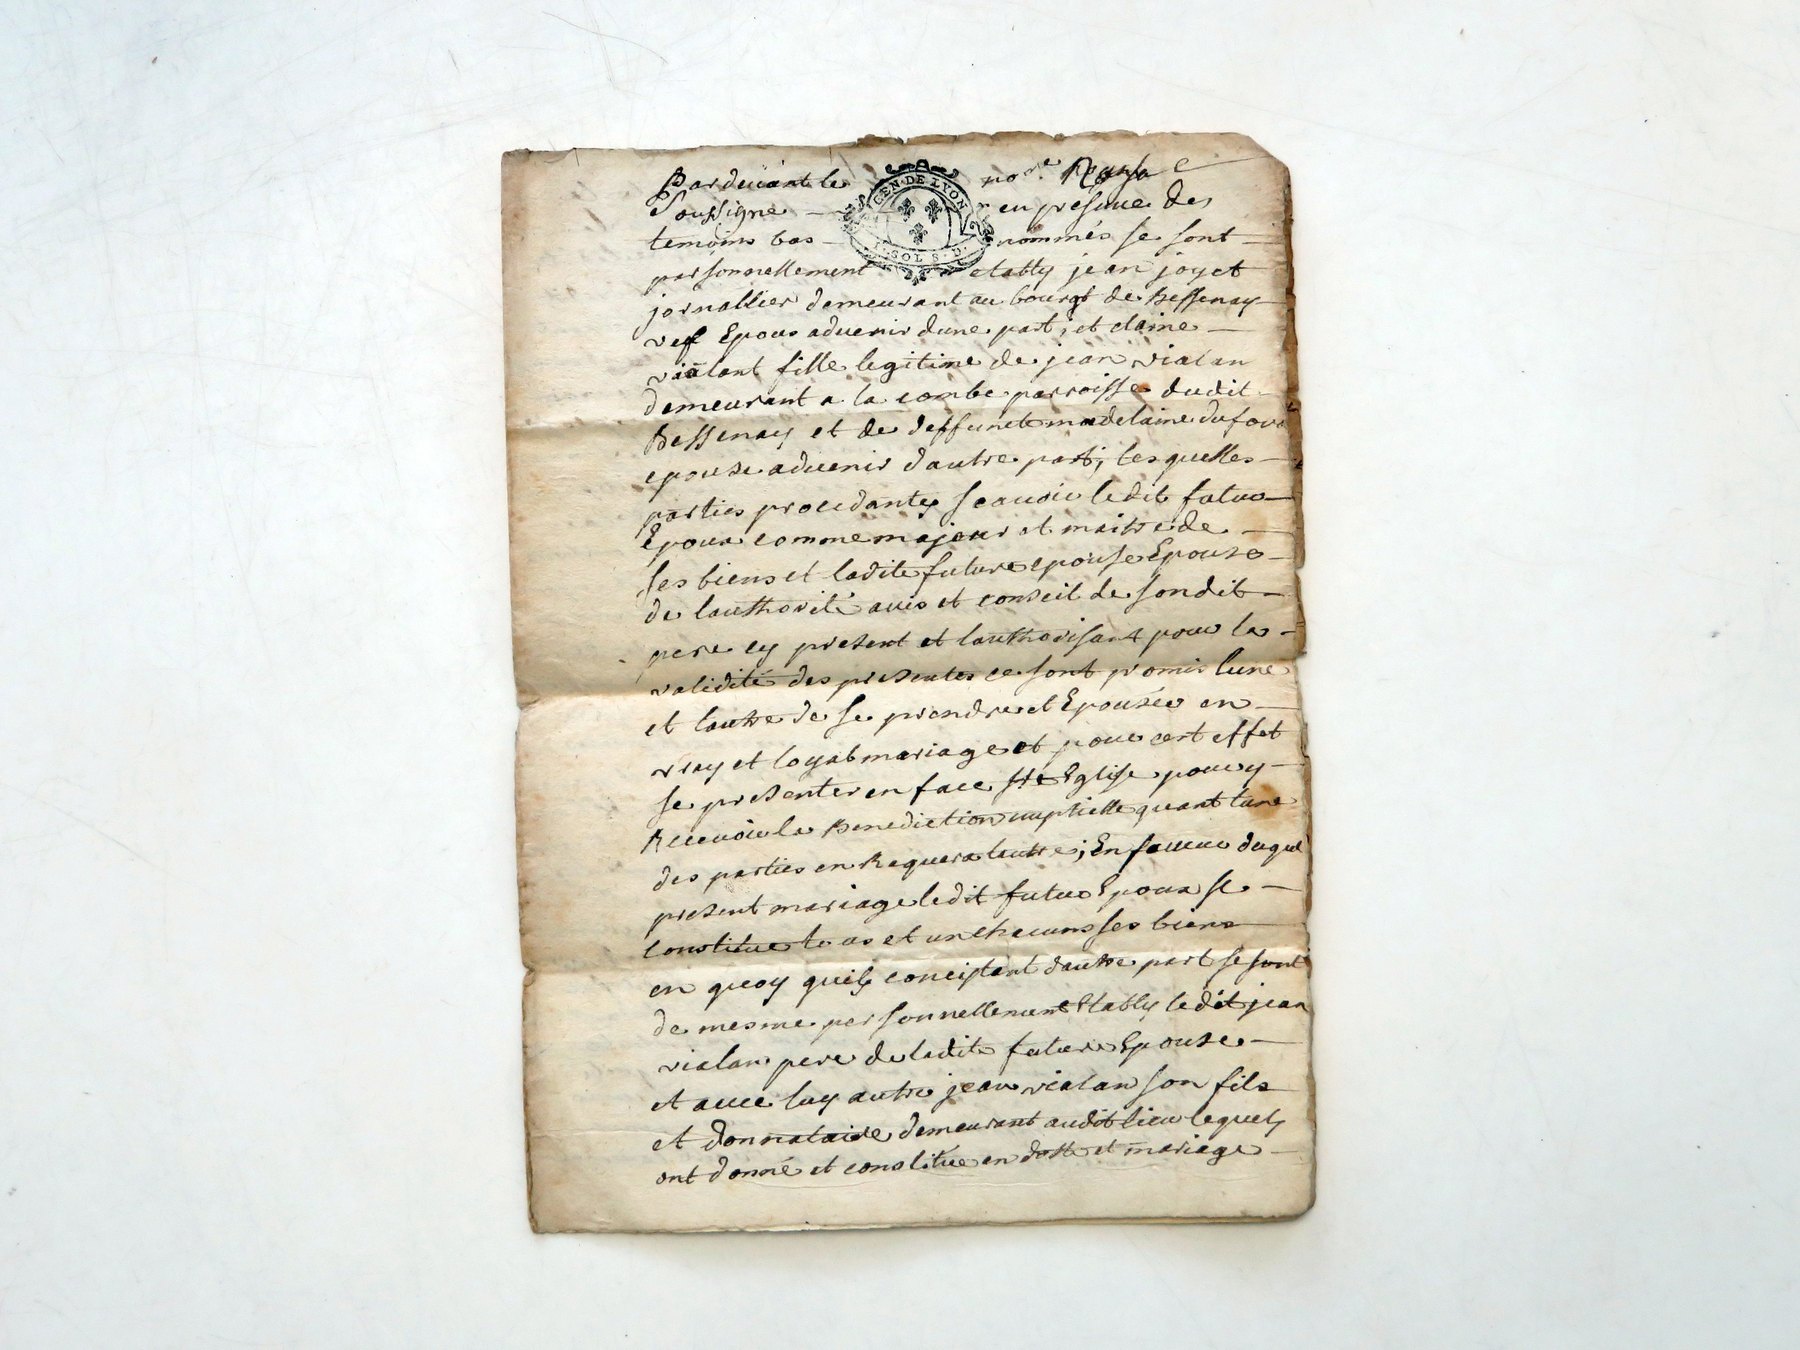 Pardevant le no.re Royal
Soussigne en presence des
GEN·DE LYON
SOL
temoins bas nommés se sont
personnellement etably jean joyet
jornallier demeurant au bourgt de Bessenay
vef Epoux advenir dune part; et claine
vialant fille legitime de jean vialan
demeurant a la combe parroisse dudit
Bessenay et de deffuncte madelaine dufour
epouse advenir dautre part; lesquelles
parties procedantes scauoir ledit futur
Epoux comme majeur et maitre de
ses biens et ladite future epouse Epouse
de lauthorité avis et conseil de sondit
pere cy present et lauthorisant pour la
validité des presentes ce sont promis lune
et lautre de se prendre et Epousée en
vray et loyal mariage et pour cest effet
se presenter en face ste Eglise pour y
Recevoir la Benediction nuptielle quant lune
des parties en Requera lautre; En faveur duquel
present mariage ledit futur Epoux se
Constitue tous et un chacuns ses biens
en quoy quils concistent dautre part se sont
de mesme personnellement Etably ledit jean
vialan pere de ladite future Epouse
et avec luy autre jean vialan son fils
et donnataire demeurant audit lieu lequels
ont donné et constitué en dost et mariage